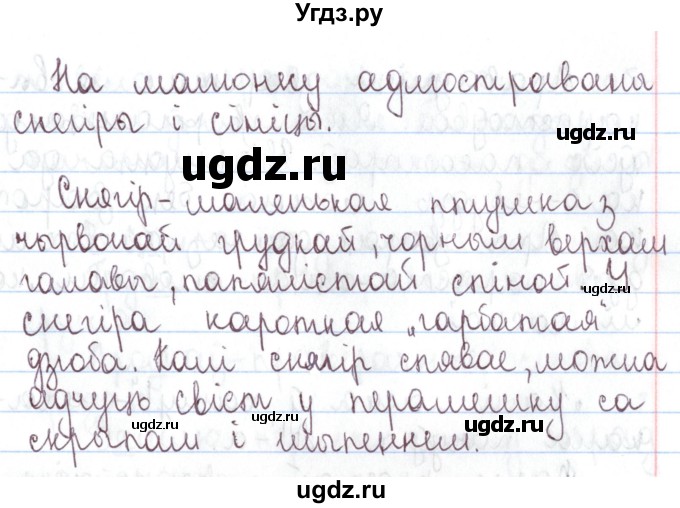 Угдз.ру
На малюнку адлюстраваны
снегіры і сініцы.
ugdz.ru
ugdz.ru
Снягір - маленькая птушка з
чырвонай грудкай, чорным верхам
галавы, папялістай спіной. У
ugdz.ru
снегіра кароткая „гарбатая"
дзюба. Калі снягір спявае, можна
адчуць свіст у перамешку са
ugdz.ru
ugdz.ru
скрыпам і шыпеннем.
ugdz.ru